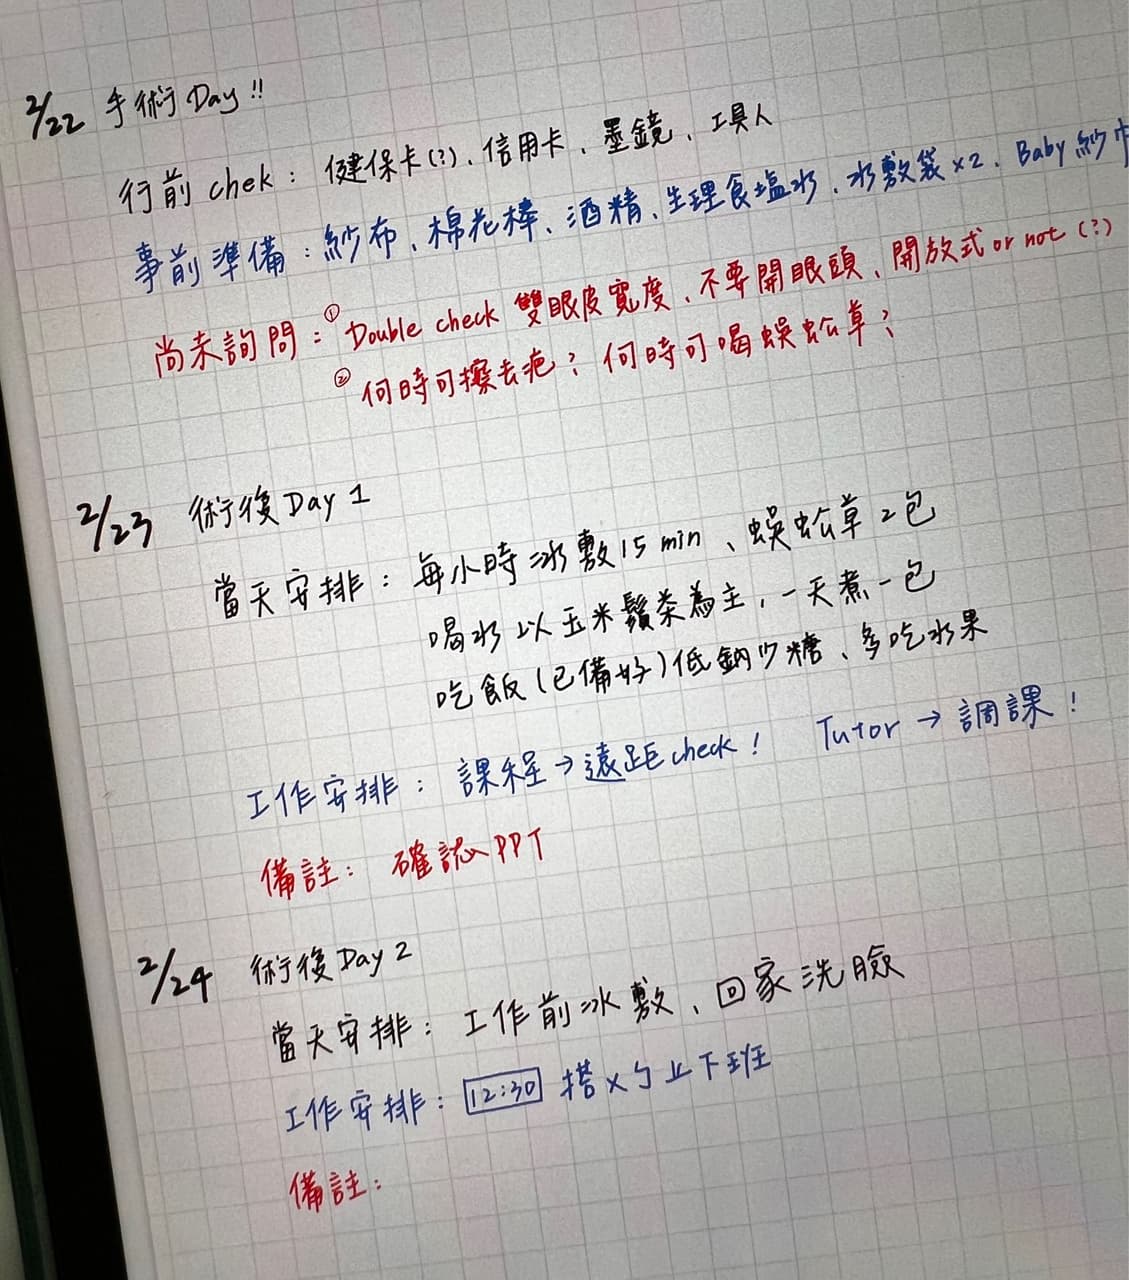 2/22 手術Day!!
行前 chek：健保卡(?)、信用卡、墨鏡、工具人
事前準備：紗布、棉花棒、酒精、生理食塩水、冰敷袋x2、Baby紗巾
尚未詢問：① Double check 雙眼皮寬度、不要開眼頭、開放式 or not (?)
② 何時可擦去疤？何時可喝蜈蚣草？
2/23 術後Day 1
當天安排：每小時冰敷15 min、蜈蚣草2包
喝水以玉米鬚茶為主，一天煮一包
吃飯(已備好)低鈉少糖、多吃水果
工作安排：課程→遠距check！ Tutor→調課！
備註：確認PPT
2/24 術後Day 2
當天安排：工作前冰敷、回家洗臉
工作安排：12:30 搭ㄨㄅ上下班
備註：